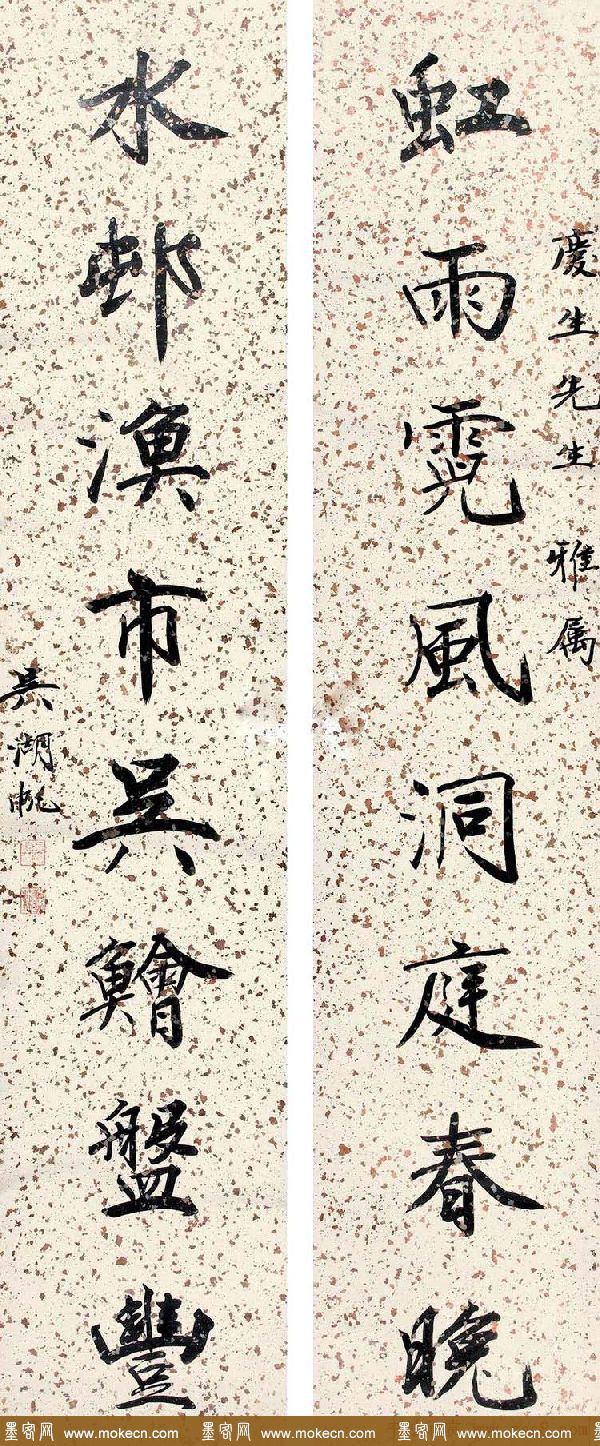 虹雨霓風洞庭春晚
慶生先生 雅属
水邨漁市吴鱠盤豐
吴湖帆
墨客网 www.mokecn.com 墨客网 www.mokecn.com 墨客网 www.mokecn.com